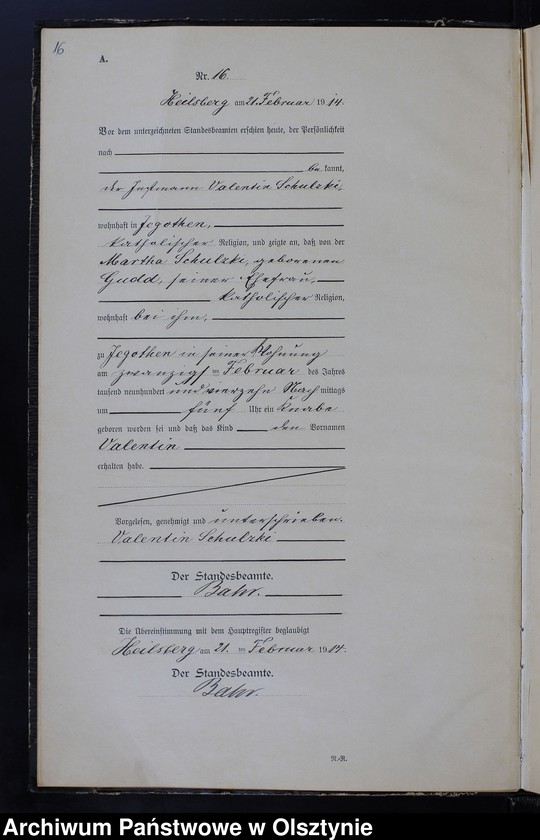 16
A.
Nr. 16.
Heilsberg am 21. Februar 1914.
Vor dem unterzeichneten Standesbeamten erschien heute, der Persönlichkeit
nach
be kannt,
der Instmann Valentin Schulzki,
wohnhaft in Jegothen,
katholischer Religion, und zeigte an, daß von der
Martha Schulzki, geborenen
Gudd, seiner Ehefrau,
katholischer Religion,
wohnhaft bei ihm,
zu Jegothen in seiner Wohnung
am zwanzigsten Februar des Jahres
tausend neunhundert und vierzehn Nach mittags
um fünf Uhr ein Knabe
geboren worden sei und daß das Kind den Vornamen
Valentin
erhalten habe.
Vorgelesen, genehmigt und unterschrieben.
Valentin Schulzki
Der Standesbeamte.
Bahr.
Die Übereinstimmung mit dem Hauptregister beglaubigt
Heilsberg am 21. ten Februar 1914.
Der Standesbeamte.
Bahr.
R.-R.
Archiwum Państwowe w Olsztynie